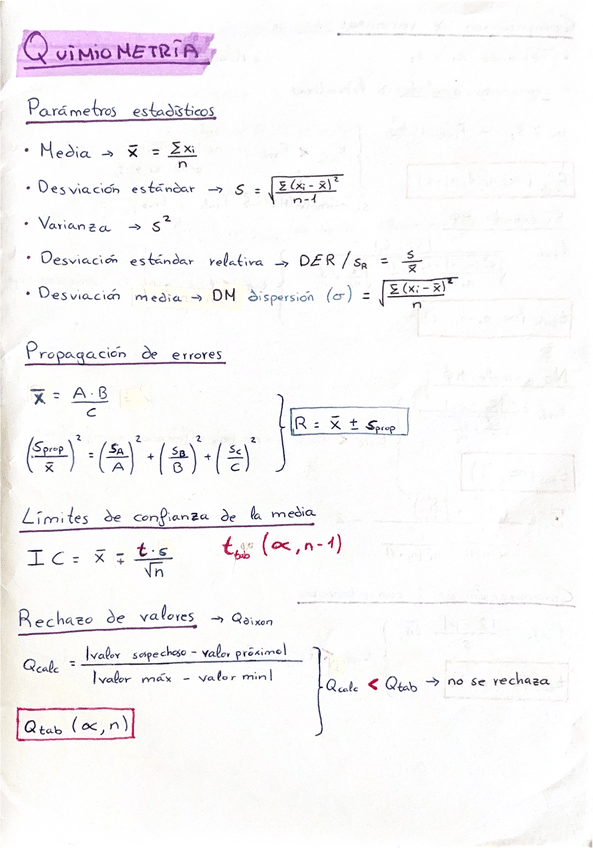 QUIMIOMETRÍA
Parámetros estadísticos
· Media → x̄ = Σxi / n
· Desviación estándar → S = √(Σ(xi - x̄)² / n-1)
· Varianza → S²
· Desviación estándar relativa → DER / sR = s / x̄
· Desviación media → DM dispersión (σ) = √(Σ(xi - x̄)² / n)
Propagación de errores
x̄ = A · B / C
(Sprop / x̄)² = (SA / A)² + (SB / B)² + (Sc / C)²
R = x̄ ± Sprop
Límites de confianza de la media
IC = x̄ ∓ t·s / √n ttab (α, n-1)
Rechazo de valores → Qdixon
Qcalc = |valor sospechoso - valor próximo| / |valor máx - valor min|
Qcalc < Qtab → no se rechaza
Qtab (α, n)